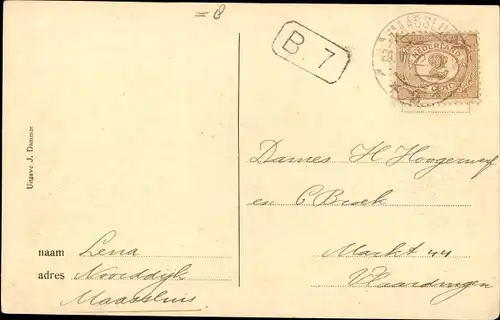 = 8
B. 7
MAASSLUIS
NEDERLAND
2
CENT
Uitgave J. Dammer
Dames H Hoogerwerf
en C Broek
Markt 44
Vlaardingen
naam Lena
adres Noorddijk
Maassluis